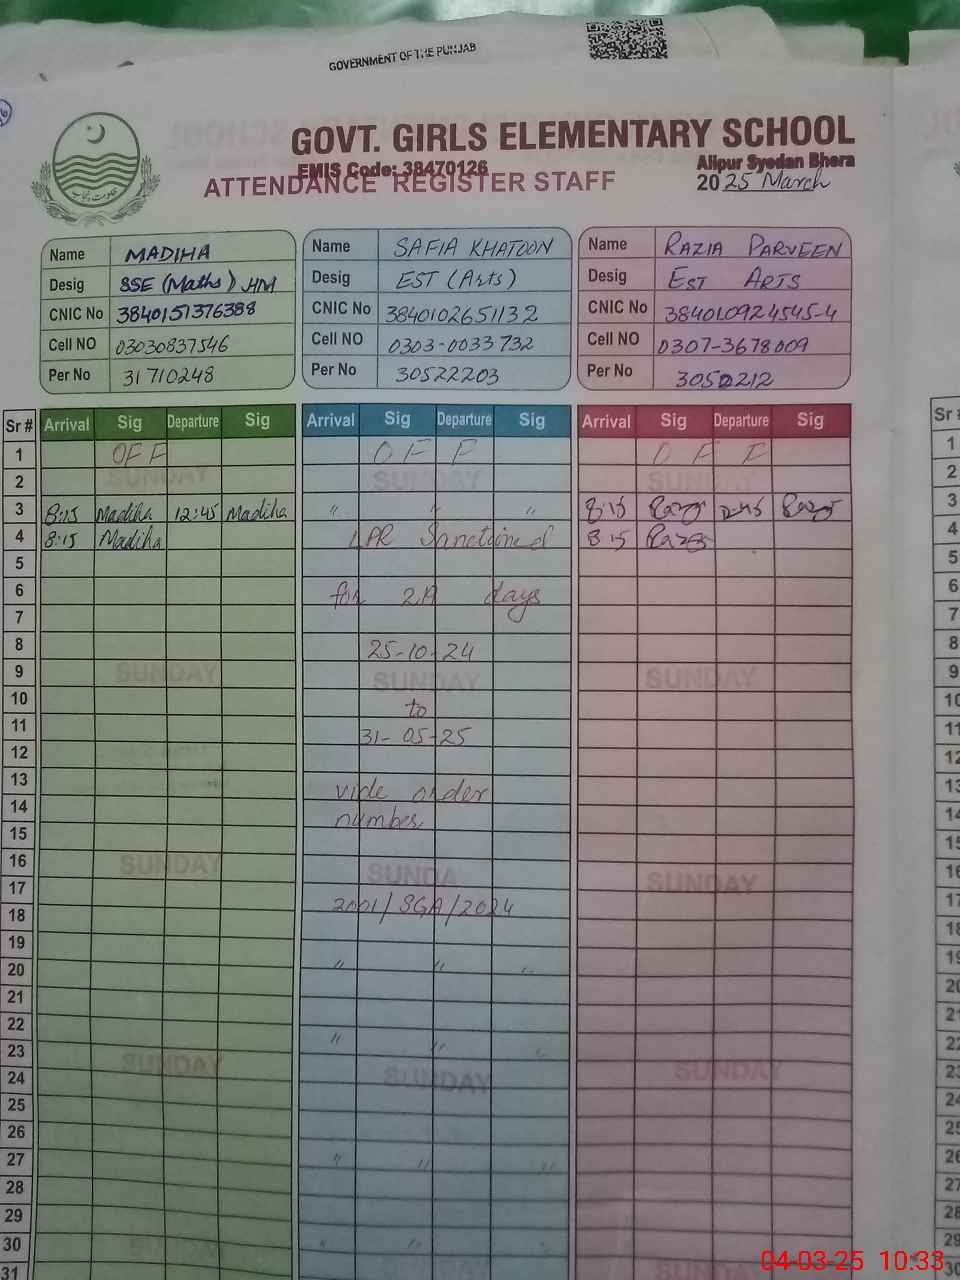 GOVERNMENT OF THE PUNJAB
GOVT. GIRLS ELEMENTARY SCHOOL
EMIS Code: 38470126
Alipur Syedan Bhera
ATTENDANCE REGISTER STAFF
2025 March
Name MADIHA
Desig SSE (Maths) HM
CNIC No 3840151376388
Cell NO 03030837546
Per No 31710248
Name SAFIA KHATOON
Desig EST (Arts)
CNIC No 3840102651132
Cell NO 0303-0033732
Per No 30522203
Name RAZIA PARVEEN
Desig EST ARTS
CNIC No 384010924545-4
Cell NO 0307-3678009
Per No 3050212
Sr # Arrival Sig Departure Sig Arrival Sig Departure Sig Arrival Sig Departure Sig Sr #
1 OFF OFF OFF 1
2 SUNDAY SUNDAY SUNDAY 2
3 8:15 Madiha 12:45 Madiha " " " 8:15 12:45 3
4 8:15 Madiha LPR Sanctioned 8:15 4
5 5
6 for days 6
7 7
8 25-10-24 8
9 SUNDAY SUNDAY SUNDAY 9
10 to 10
11 31-05-25 11
12 12
13 vide order 13
14 number 14
15 15
16 SUNDAY SUNDA SUNDAY 16
17 17
18 2001/SGA/2024 18
19 19
20 " " " 20
21 21
22 22
23 " " " 23
SUNDAY SUNDAY SUNDAY
24 24
25 25
26 26
27 " " " 27
28 28
29 29
30 " " " 30
31
04-03-25 10:33